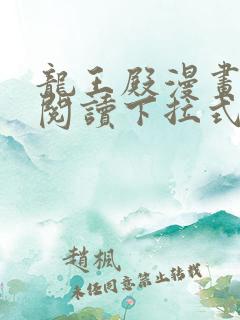 龍王殿漫畫
閱讀下拉式
趙楓
未經同意禁止轉載